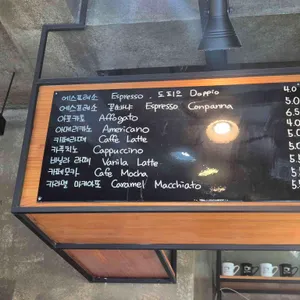 에스프레소 Espresso . 도피오 Doppio 4.0
에스프레소 콘파냐 Espresso Conpanna 5.0
아포가토 Affogato 6.5
아메리카노 Americano
카페라떼 Caffe Latte 5.0
카푸치노 Cappuccino
바닐라 라떼 Vanila Latte
카페모카 Cafe Mocha
카라멜 마키아또 Caramel Macchiato